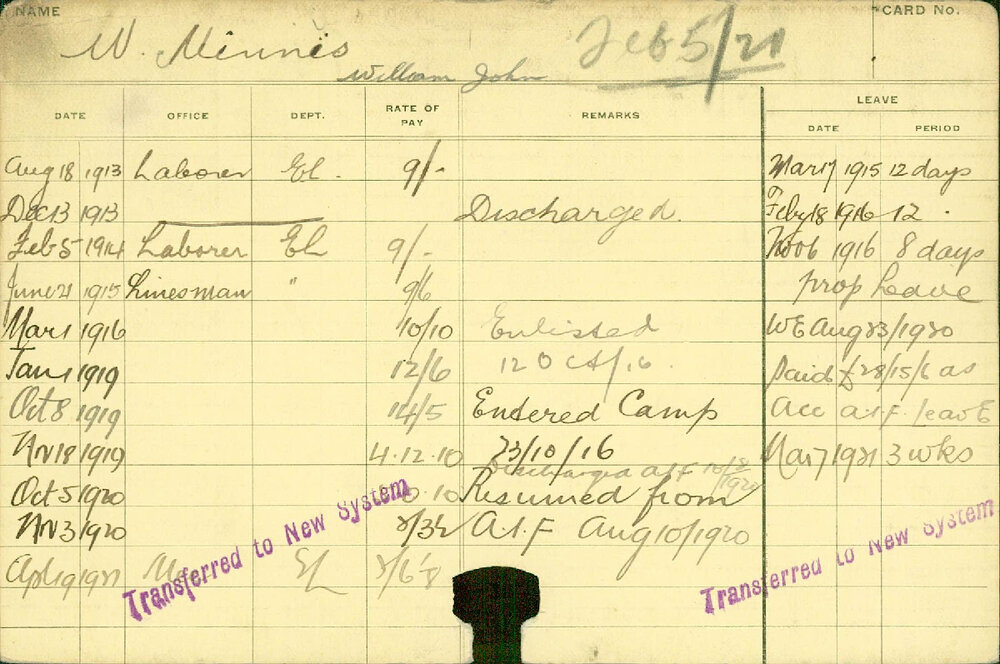 NAME CARD No.
W. Minnis Feb 5/21
William John
DATE OFFICE DEPT. RATE OF PAY REMARKS LEAVE
DATE PERIOD
Aug 18 1913 Laborer El. 9/- Mar 17 1915 12 days
Dec 13 1913 Discharged. Feby 18 1916 12 .
Feb 5 1914 Laborer El 9/- Nov 6 1916 8 days
June 21 1915 Linesman " 9/6 prop Leave
Mar 1 1916 10/10 Enlisted W E Aug 23/1920
Jan 1 1919 12/6 12 Oct/16. Paid £28/15/6 as
Oct 8 1919 14/5 Entered Camp Acc A.I.F. leave
Nov 18 1919 4.12.10 23/10/16 Mar 7 1921 3 wks
Discharged A.I.F 10/8/1920
Oct 5 1920 Resumed from
Nov 3 1920 A.I.F Aug 10/1920
Apl 19 1921 El
Transferred to New System
Transferred to New System